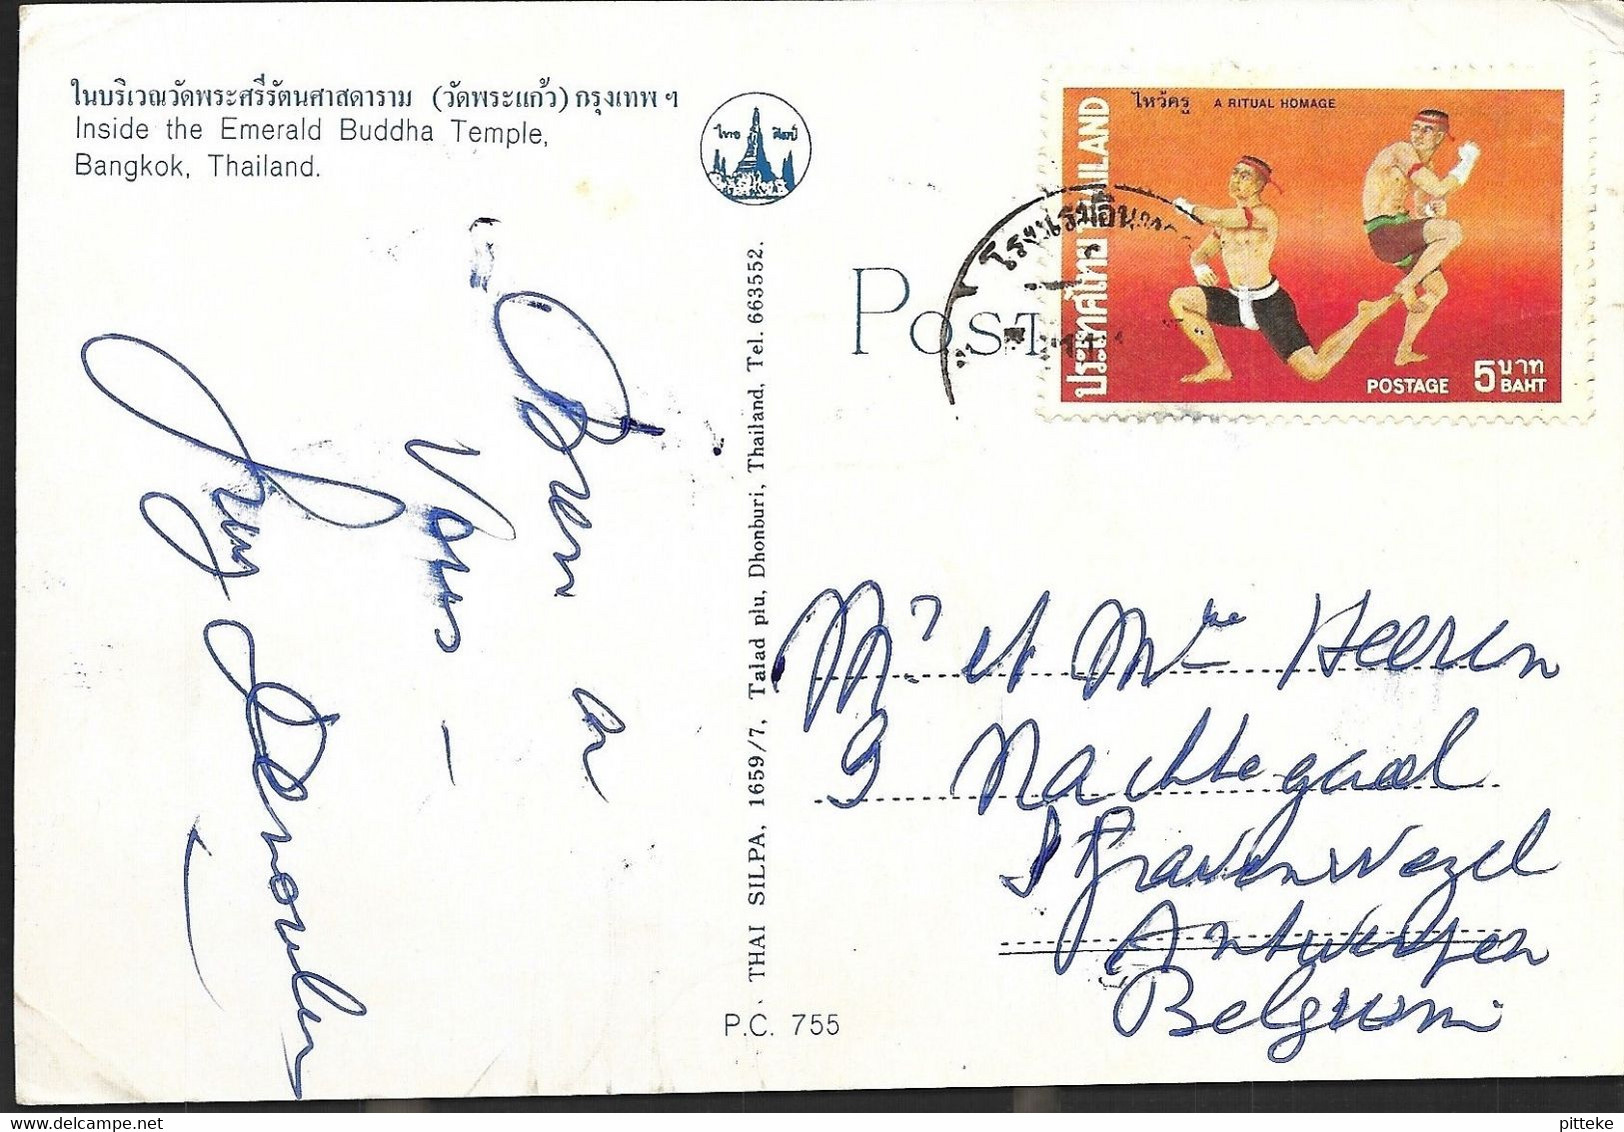 ในบริเวณวัดพระศรีรัตนศาสดาราม (วัดพระแก้ว) กรุงเทพ ฯ
Inside the Emerald Buddha Temple,
Bangkok, Thailand.
ไทย ศิลป์
ไหว้ครู A RITUAL HOMAGE
ประเทศไทย THAILAND
POSTAGE 5 บาท BAHT
โรงแรมอิน
POST
THAI SILPA, 1659/7, Talad plu, Dhonburi, Thailand, Tel. 663552.
P.C. 755
Mr et Mme Heeren
9 Nachtegaal
Gravenwezel
Antwerpen
Belgium